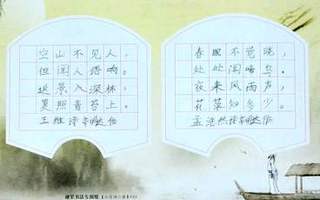 空山不见人，
但闻人语响。
返景入深林，
复照青苔上。
王维诗
春眠不觉晓，
处处闻啼鸟。
夜来风雨声，
花落知多少。
孟浩然诗
硬笔书法专用纸